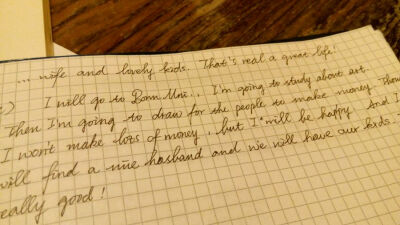 ... wife and lovely kids. That's real a great life!
I will go to Bonn Uni., I'm going to study about art
Then I'm going to draw for the people to make money. Thou
I won't make lots of money, but I will be happy. And I
will find a nice hasband and we will have our kids.
really good!